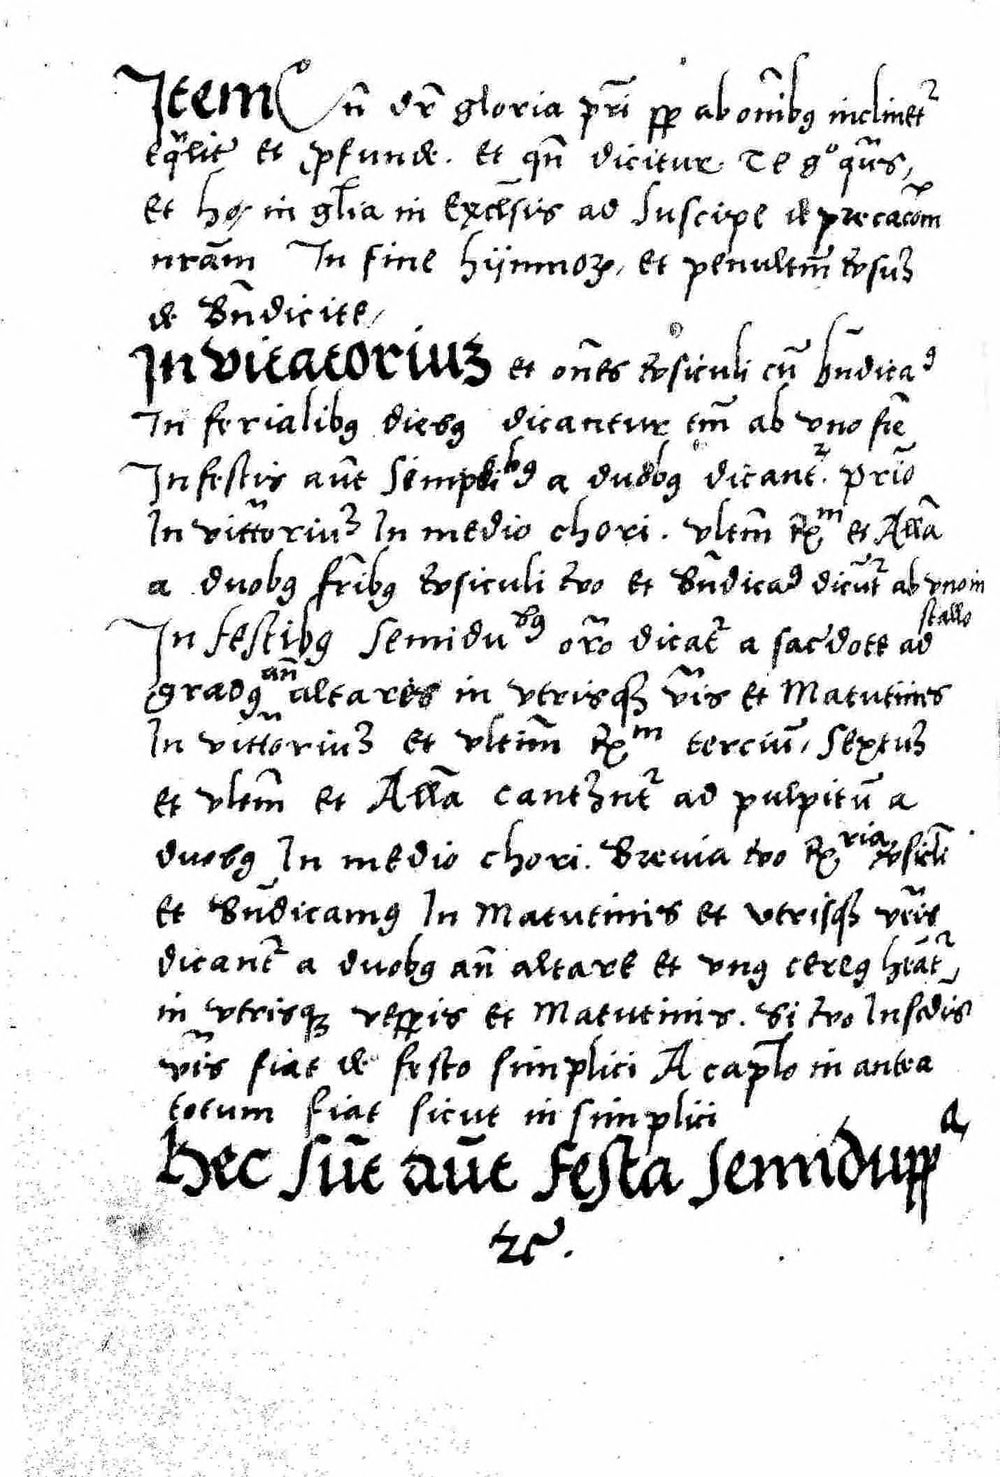 Item Cn̄ dr̄ gloria pr̄i ꝑꝑ ab om̄ibꝯ inclinet᷑
eq̄lit᷑ et ꝓfunde. et qn̄ dicitur Te gº qūs,
et hoc in gl̄ia in excēsis ad Suscipe deprecacōm
nrām In fine hijmnoꝝ, et penultim̄ v̄susꝫ
de Bn̄dicite,
Invitatoriuꝫ et om̄es v̄siculi cū bn̄dicaꝰ
In ferialibꝯ diebꝯ dicantur tm̄ ab vno fr̄e
In festis aūt Simplicibꝰ a duobꝯ dicant᷑. prīo
In vitt̄oriuꝫ In medio chori. vltim̄ ℞ᵐ et All̄a
a duobꝯ fr̄ibꝯ v̄siculi v̄o et Bn̄dicaꝰ dicūt᷑ ab vno in
stallo
In festibꝯ Semidubꝯ or̄o dicat᷑ a sac̄dote ad
gradꝯ an̄ altares in vtrisqꝫ vr̄is et Matutinis
In vitt̄oriuꝫ et vltim̄ ℞ᵐ terciū, Sextuꝫ
et vltim̄ et All̄a cantent᷑ ad pulpitū a
duobꝯ In medio chori. Brevia v̄o ℞ʳⁱᵃ v̄sicl̄i
et Bn̄dicamꝯ In Matutinis et vtrisqꝫ vr̄is
dicant᷑ a duobꝯ an̄ altare et vnꝯ cereꝯ hēat᷑
in vtrisqꝫ vesꝑis et Matutinis. Si v̄o In scdis
vr̄is fiat de festo simplici A capl̄o in antea
totum fiat sicut in simplici
Hec sūt aūt festa semidupp a
ꝛc̄.